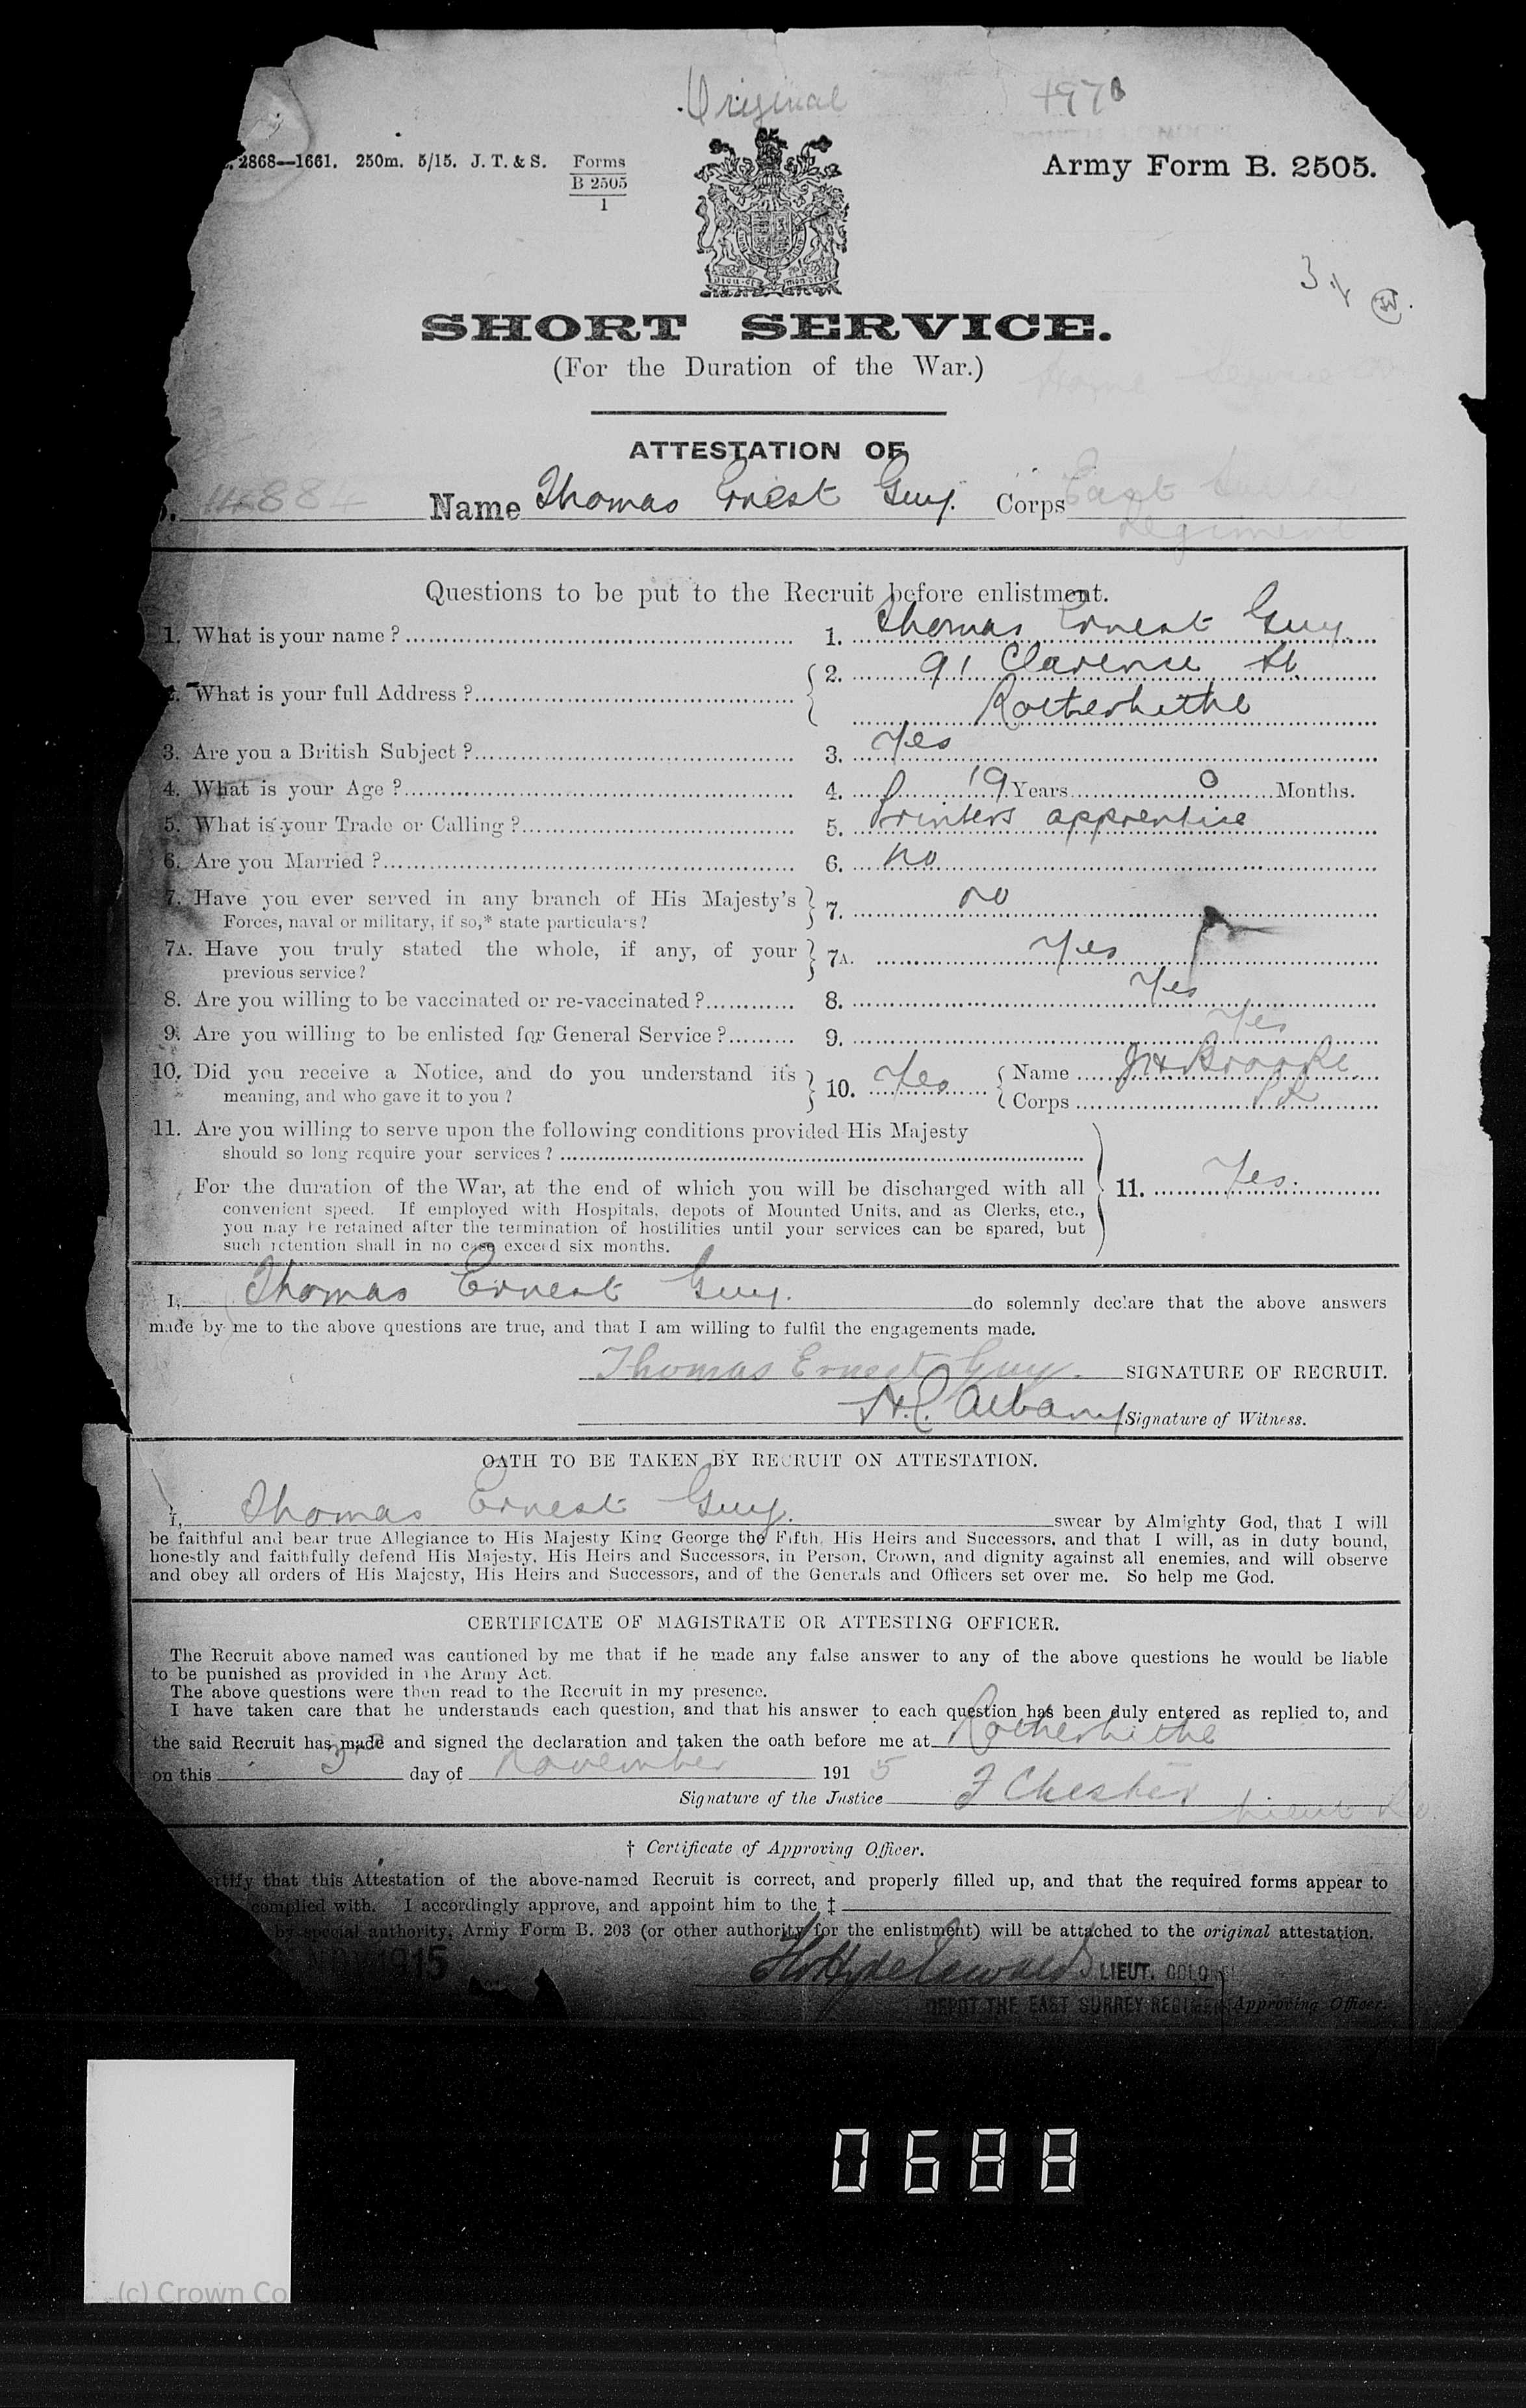 Original
2868—1661. 250m. 5/15. J. T. & S. Forms
B 2505
1
Army Form B. 2505.
SHORT SERVICE.
(For the Duration of the War.)
ATTESTATION OF
14884 Name Thomas Ernest Guy. Corps East Surrey
Regiment
Questions to be put to the Recruit before enlistment.
1. What is your name ? 1. Thomas Ernest Guy
What is your full Address ? 2. 91 Clarence St.
Rotherhithe
3. Are you a British Subject ? 3. Yes
4. What is your Age ? 4. 19 Years 0 Months.
5. What is your Trade or Calling ? 5. Printers apprentice
6. Are you Married ? 6. No
7. Have you ever served in any branch of His Majesty's 7. no
Forces, naval or military, if so,* state particulars?
7A. Have you truly stated the whole, if any, of your 7A. Yes
previous service?
8. Are you willing to be vaccinated or re-vaccinated ? 8. Yes
9. Are you willing to be enlisted for General Service ? 9. Yes
10. Did you receive a Notice, and do you understand its 10. Yes Name Brooke
meaning, and who gave it to you ? Corps
11. Are you willing to serve upon the following conditions provided His Majesty
should so long require your services ?
For the duration of the War, at the end of which you will be discharged with all 11. Yes.
convenient speed. If employed with Hospitals, depots of Mounted Units, and as Clerks, etc.,
you may be retained after the termination of hostilities until your services can be spared, but
such retention shall in no case exceed six months.
I, Thomas Ernest Guy. do solemnly declare that the above answers
made by me to the above questions are true, and that I am willing to fulfil the engagements made.
Thomas Ernest Guy. SIGNATURE OF RECRUIT.
H.C. Albany Signature of Witness.
OATH TO BE TAKEN BY RECRUIT ON ATTESTATION.
I, Thomas Ernest Guy. swear by Almighty God, that I will
be faithful and bear true Allegiance to His Majesty King George the Fifth, His Heirs and Successors, and that I will, as in duty bound,
honestly and faithfully defend His Majesty, His Heirs and Successors, in Person, Crown, and dignity against all enemies, and will observe
and obey all orders of His Majesty, His Heirs and Successors, and of the Generals and Officers set over me. So help me God.
CERTIFICATE OF MAGISTRATE OR ATTESTING OFFICER.
The Recruit above named was cautioned by me that if he made any false answer to any of the above questions he would be liable
to be punished as provided in the Army Act.
The above questions were then read to the Recruit in my presence.
I have taken care that he understands each question, and that his answer to each question has been duly entered as replied to, and
the said Recruit has made and signed the declaration and taken the oath before me at Rotherhithe
on this 3rd day of November 1915
Signature of the Justice F Chester
† Certificate of Approving Officer.
that this Attestation of the above-named Recruit is correct, and properly filled up, and that the required forms appear to
complied with. I accordingly approve, and appoint him to the ‡
by special authority, Army Form B. 203 (or other authority for the enlistment) will be attached to the original attestation.
1915
LIEUT. COLONEL
DEPOT THE EAST SURREY REGIMENT Approving Officer.
0688
(c) Crown Co